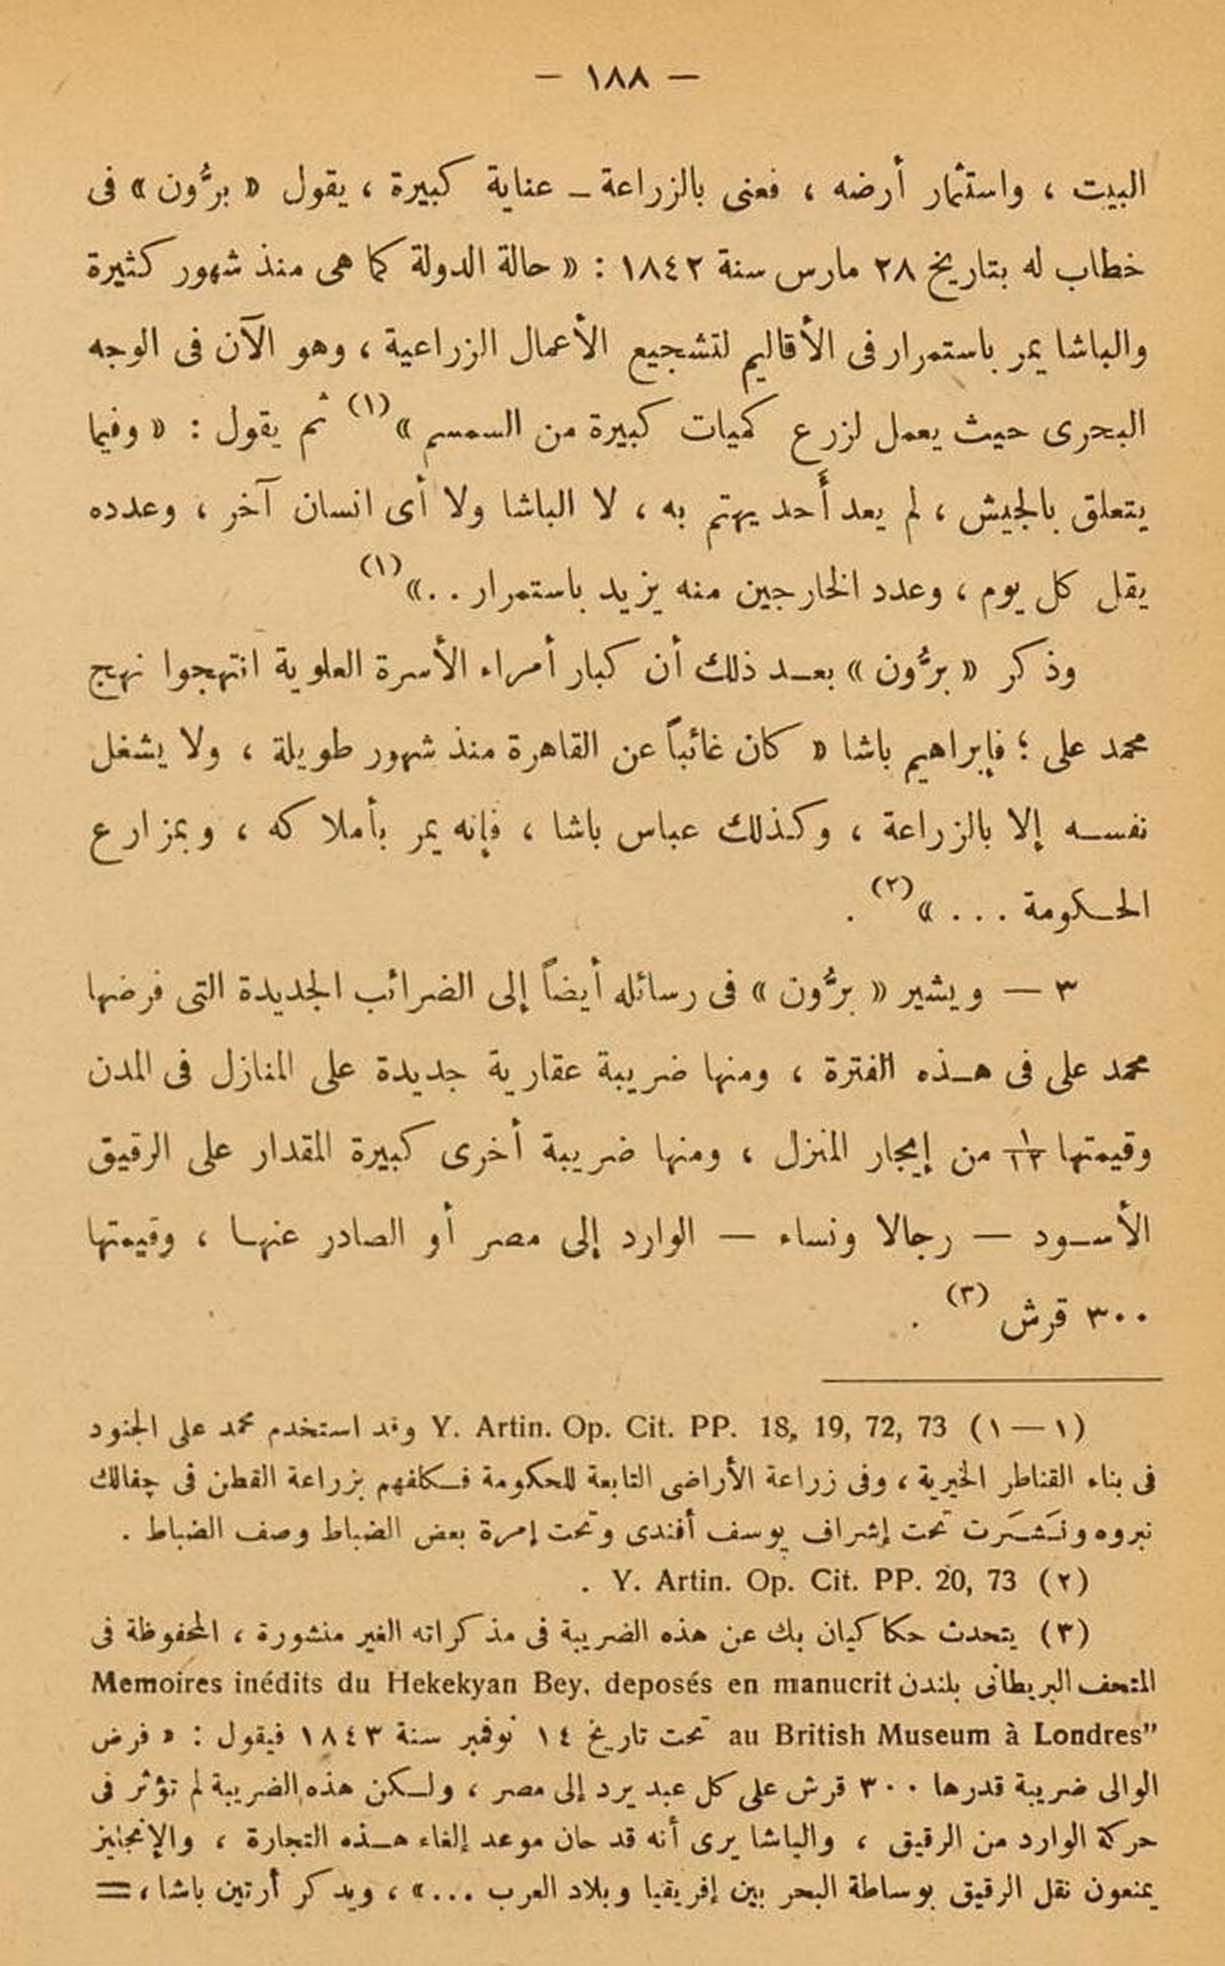 — ١٨٨ —
البيت ، واستثمار أرضه ، فعنى بالزراعة ــ عناية كبيرة ، يقول « برُّون » فى
خطاب له بتاريخ ٢٨ مارس سنة ١٨٤٢ : « حالة الدولة كما هى منذ شهور كثيرة
والباشا يمر باستمرار فى الأقاليم لتشجيع الأعمال الزراعية ، وهو الآن فى الوجه
البحرى حيث يعمل لزرع كميات كبيرة من السمسم »(١) ثم يقول : « وفيما
يتعلق بالجيش ، لم يعد أَحد يهتم به ، لا الباشا ولا أى انسان آخر ، وعدده
يقل كل يوم ، وعدد الخارجين منه يزيد باستمرار . . »(١)
وذكر « برُّون » بعـد ذلك أن كبار أمراء الأسرة العلوية انتهجوا نهج
محمد على ؛ فإبراهيم باشا « كان غائباً عن القاهرة منذ شهور طويلة ، ولا يشغل
نفسـه إلا بالزراعة ، وكذلك عباس باشا ، فإنه يمر بأملاكه ، وبمزارع
الحـكومة . . . »(٢) .
٣ — ويشير « برُّون » فى رسائله أيضاً إلى الضرائب الجديدة التى فرضها
محمد على فى هـذه الفترة ، ومنها ضريبة عقارية جديدة على المنازل فى المدن
وقيمتها ١/١٢ من إيجار المنزل ، ومنها ضريبة أخرى كبيرة المقدار على الرقيق
الأسـود — رجالا ونساء — الوارد إلى مصر أو الصادر عنهـا ، وقيمتها
٣٠٠ قرش (٣) .
(١ — ١) Y. Artin. Op. Cit. PP. 18, 19, 72, 73 وقد استخدم محمد على الجنود
فى بناء القناطر الخيرية ، وفى زراعة الأراضى التابعة للحكومة فـكلفهم بزراعة القطن فى چفالك
نبروه ونَـشَـرت تحت إشراف يوسف أفندى وتحت إمرة بعض الضباط وصف الضباط .
(٢) Y. Artin. Op. Cit. PP. 20, 73 .
(٣) يتحدث حكاكيان بك عن هذه الضريبة فى مذكراته الغير منشورة ، المحفوظة فى
المتحف البريطانى بلندن Memoires inédits du Hekekyan Bey, deposés en manucrit
au British Museum à Londres” تحت تاريخ ١٤ نوفمبر سنة ١٨٤٣ فيقول : « فرض
الوالى ضريبة قدرها ٣٠٠ قرش على كل عبد يرد إلى مصر ، ولـكن هذه الضريبة لم تؤثر فى
حركة الوارد من الرقيق ، والباشا يرى أنه قد حان موعد إلغاء هـذه التجارة ، والإنجليز
يمنعون نقل الرقيق بوساطة البحر بين إفريقيا وبلاد العرب ...» ، ويذكر أرتين باشا ، =